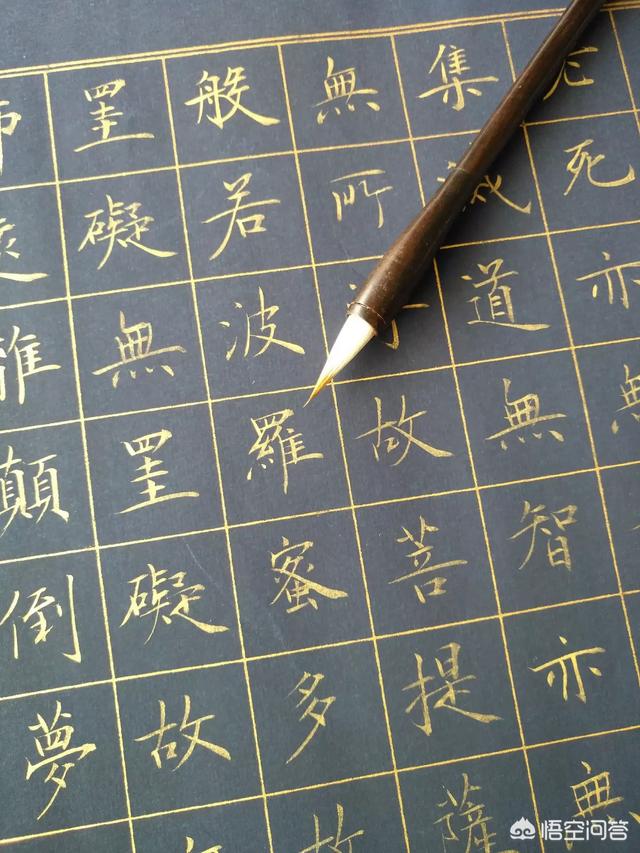 死亦
集滅道無智亦無
無所故菩提薩
般若波羅蜜多故
罣礙無罣礙故
怖遠離顛倒夢
悟空问答